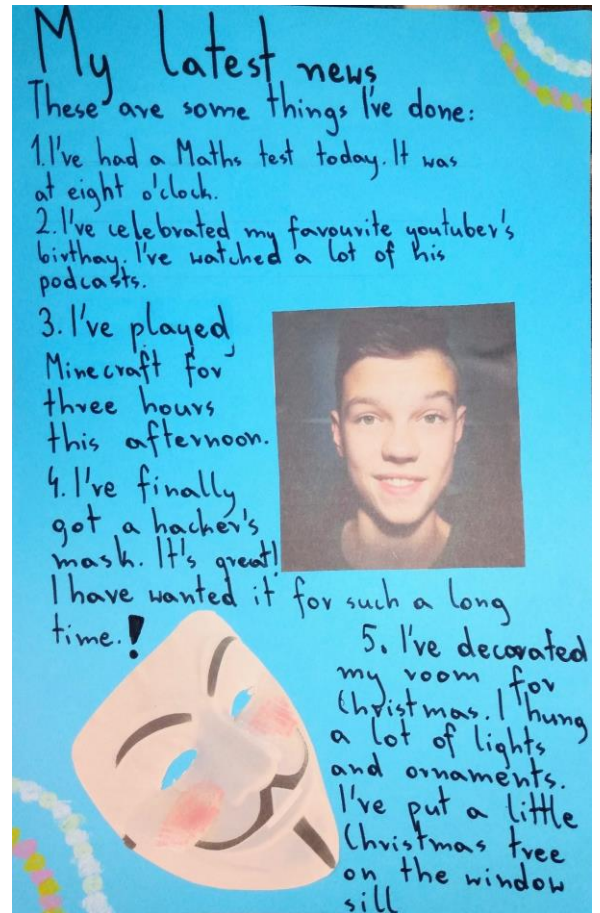 My latest news
These are some things I've done:
1. I've had a Maths test today. It was
at eight o'clock.
2. I've celebrated my favourite youtuber's
birthay. I've watched a lot of his
podcasts.
3. I've played
Minecraft for
three hours
this afternoon.
4. I've finally
got a hacker's
mask. It's great!
I have wanted it for such a long
time.!
5. I've decorated
my room for
Christmas. I hung
a lot of lights
and ornaments.
I've put a little
Christmas tree
on the window
sill